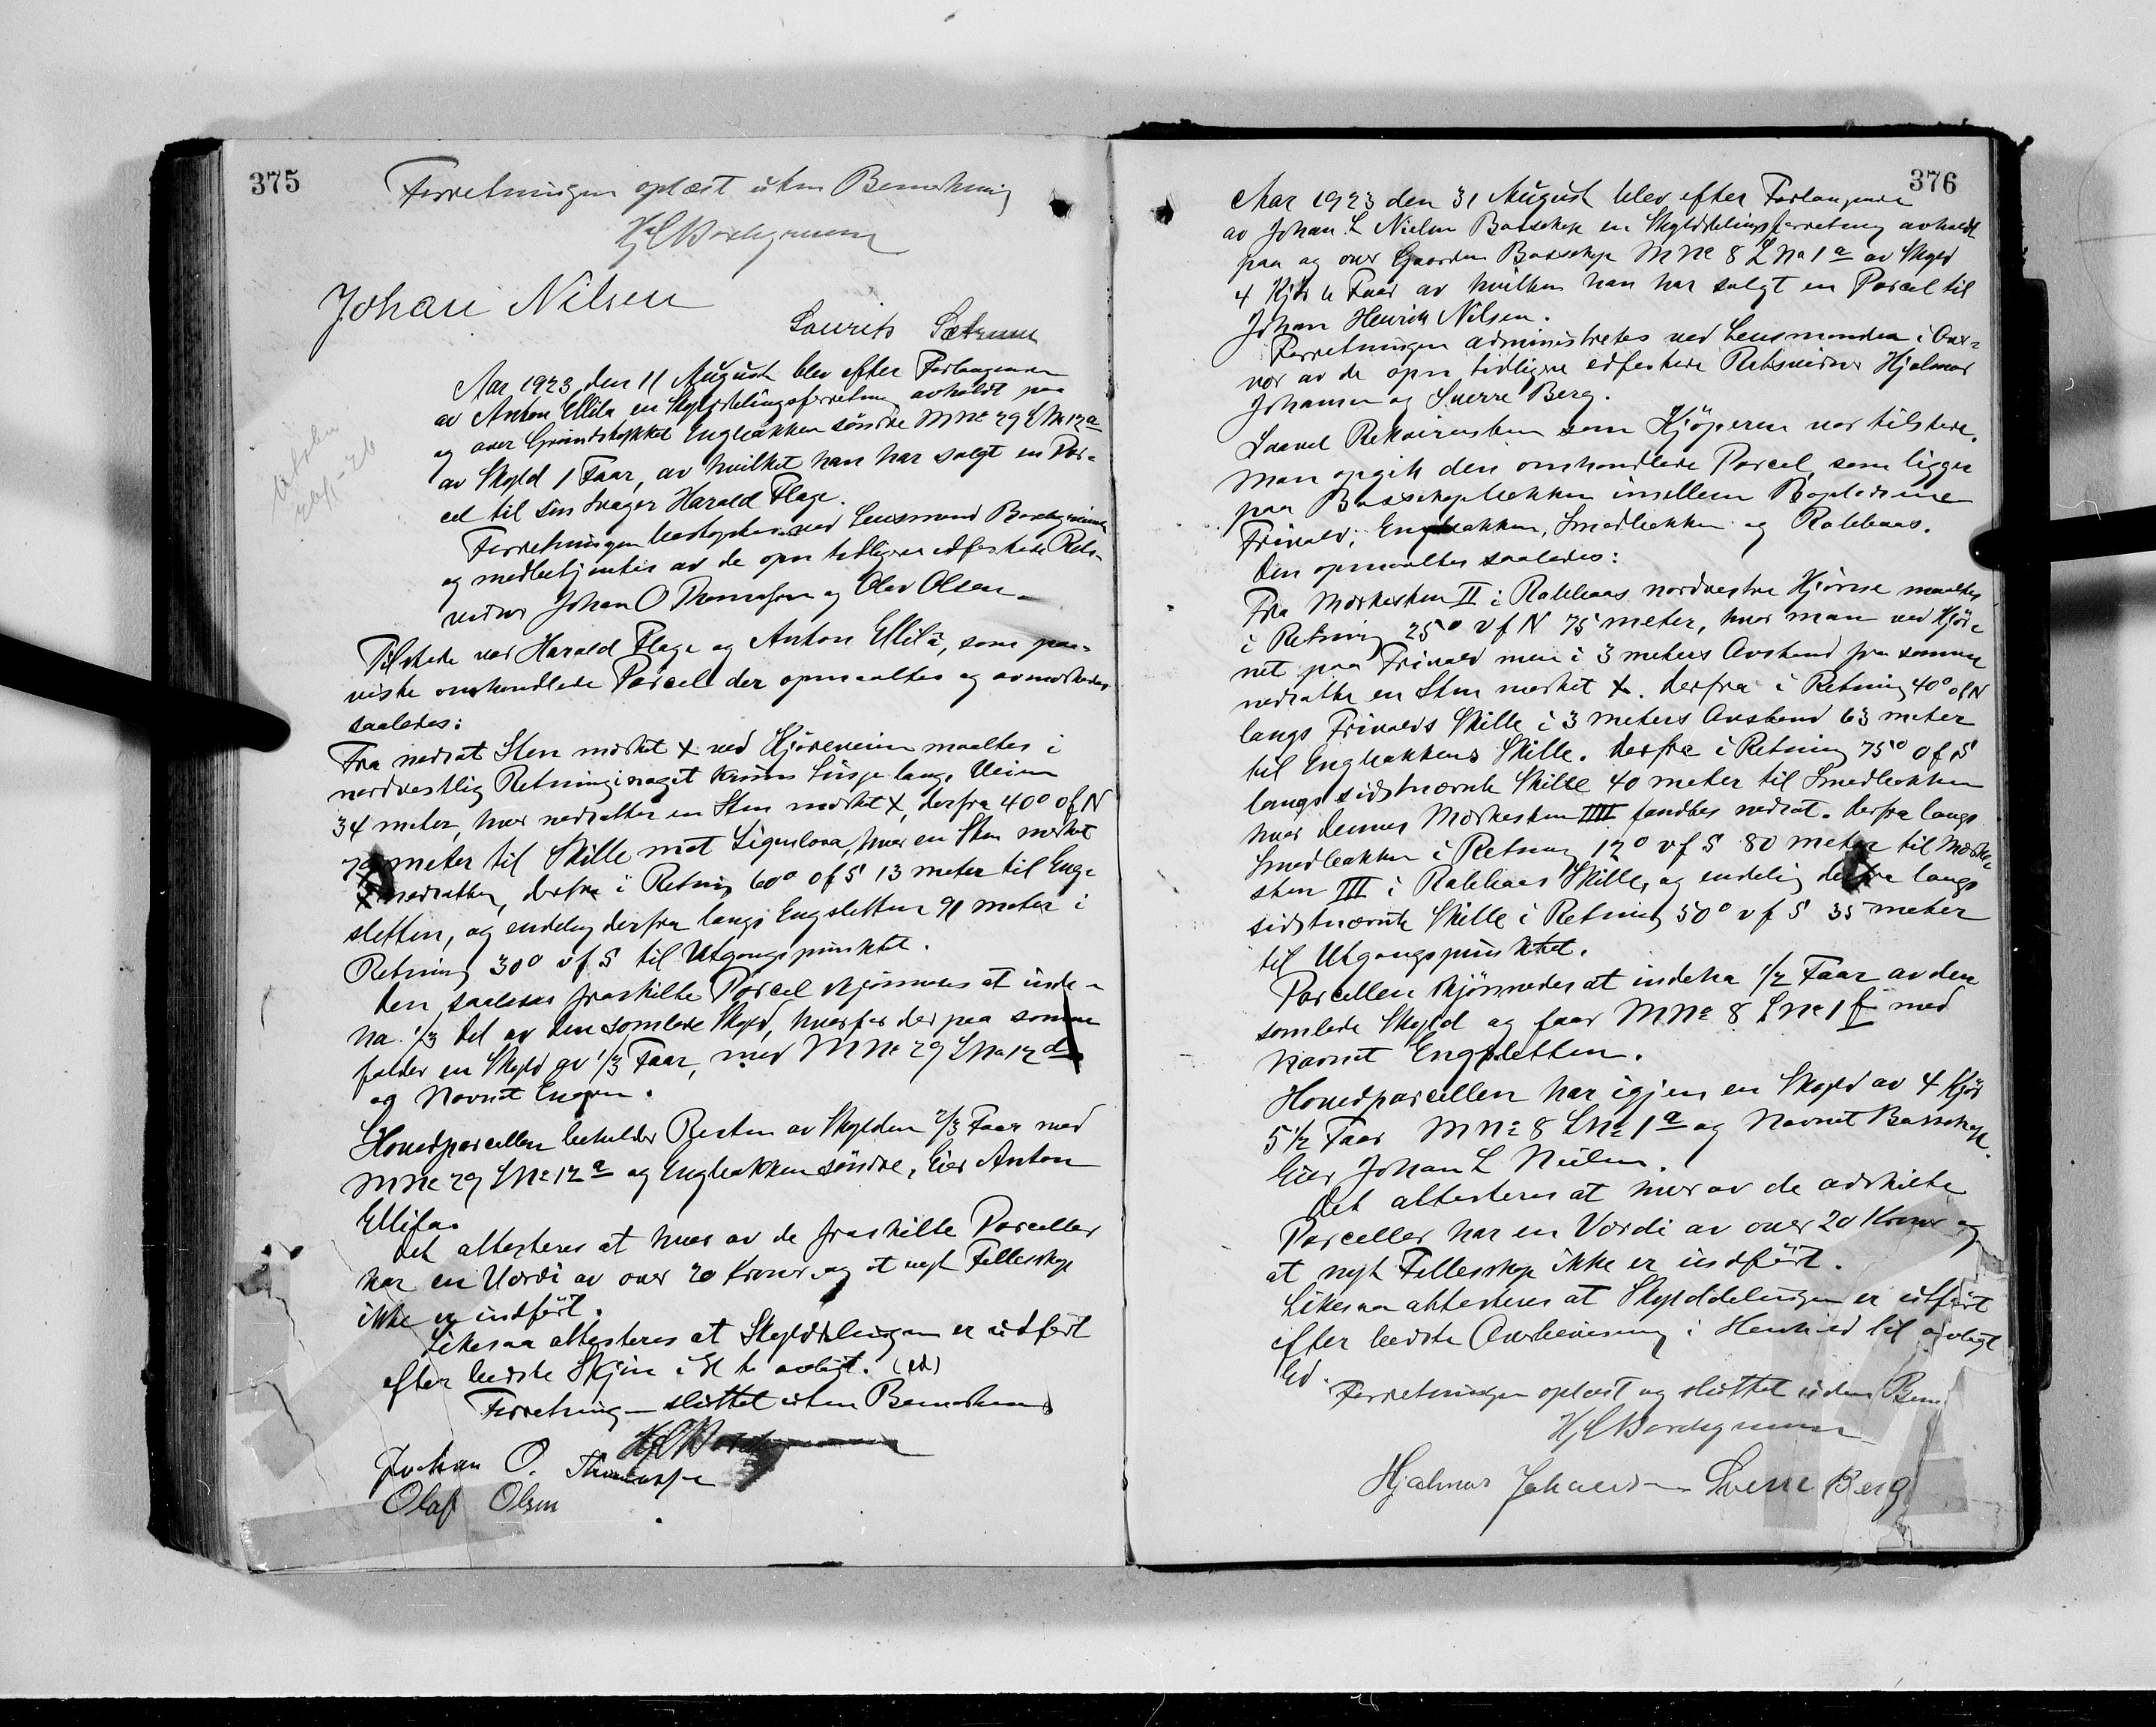 375
Forretningen oplæst uten Bemerkning
Johan Nilsen
Laurits
Utskr
Aar 1923 den 11 August blev efter Forlangende
av Anton Ellila en Skylddelingsforretning avholdt paa
og over Grundstykket Engbakken söndre M No 29 L No 12 a
av Skyld 1 Faar, av hvilket han har solgt en Par=
cel til sin Svager Harald Flage.
Forretningen ved Lensmand
og medbetjentes av de opn tidligere edfestede Rets-
vidner Johan O Thomassen og Olav Olsen.
Tilstede var Harald Flage og Anton Ellila, som paa=
viste omhandlede Parcel der opmaaltes og avmerkedes
saaledes:
Fra nedsat Sten merket x ved Kjøreveien maaltes i
nordvestlig Retning i noget krum Linje langs Veien
34 meter, hvor nedsattes en Sten merket x, derfra 40° ofN
meter til Skille mot hvor en Sten merket
x nedsattes, derfra i Retning 60° of S 13 meter til Eng=
sletten, og endelig derfra langs Engsletten 91 meter i
Retning 30° vf S til Utgangspunktet.
Den saaledes fraskilte Parcel skjønnedes at inde-
ha 1/3 Del av den samlede Skyld, hvorfor der paa samme
falder en Skyld av 1/3 Faar, med M No 29 L No 12 d
og Navnet Engen.
Hovedparcellen beholder Resten av Skylden 2/3 Faar med
M No 29 L No 12 a og Engbakken söndre, Eier Anton
Ellila.
Det attesteres at hver av de fraskilte Parceller
har en Værdi av over 20 Kroner og at nyt Fellesskap
ikke er indført.
Likesaa attesteres at Skylddelingen er utført
efter bedste Skjøn i H t avlagt. (ed)
Forretning- sluttet uten Bemerkning
Johan O. Thomassen
Olaf Olsen
376
Aar 1923 den 31 August blev efter Forlangende
av Johan L Nielsen Bossekop en Skylddelingsforretning avholdt
paa og over Gaarden Bossekop M No 8 L No 1 a av Skyld
4 Kjör 6 Faar av hvilken han har solgt en Parcel til
Johan Henrik Nilsen.
Forretningen administreres ved Lensmanden i Over=
vær av de opn tidligere edfestede Retsvidner Hjalmar
Johansen og Sverre Berg.
Saavel Rekvirenten som Kjöperen var tilstede.
Man opgik den omhandlede Parcel, som ligger
paa Bossekopbakken imellem Bopladsene
Frivold, Engbakken, Smedbakken og Rabbaas.
Den opmaaltes saaledes:
Fra Merkesten II i Rabbaas nordvestre Hjörne maaltes
i Retning 25° vf N 75 meter, hvor man ved Hjör=
net paa Frivold men i 3 meters Avstand fra samme
nedsatte en Sten merket x. Derfra i Retning 40° ofN
langs Frivolds Skille i 3 meters Avstand 63 meter
til Engbakkens Skille. Derfra i Retning 75° of S
langs sidstnævnte Skille 40 meter til Smedbakken
hvor dennes Merkesten IIII fandtes nedsat. Derfra langs
Smedbakken i Retning 12° vf S 80 meter til Merke=
sten III i Rabbaas Skille, og endelig derfra langs
sidstnævnte Skille i Retning 50° vf S 35 meter
til Utgangspunktet.
Parcellen skjönnedes at indeha 1/2 Faar av den
samlede Skyld og faar M No 8 L No 1 f med
Navnet Engsletten.
Hovedparcellen har igjen en Skyld av 4 Kjör
5 1/2 Faar M No 8 L No 1 a og Navnet Bossekop.
Eier Johan L Nielsen.
Det attesteres at hver av de adskilte
Parceller har en Værdi av over 20 Kroner og
at nyt Fellesskap ikke er indført.
Likesaa attesteres at Skylddelingen er utført
efter bedste Overbevisning i Henhold til avlagt
Ed.
Forretningen oplæst og sluttet uden Bem
Hjalmar Johansen Sverre Berg